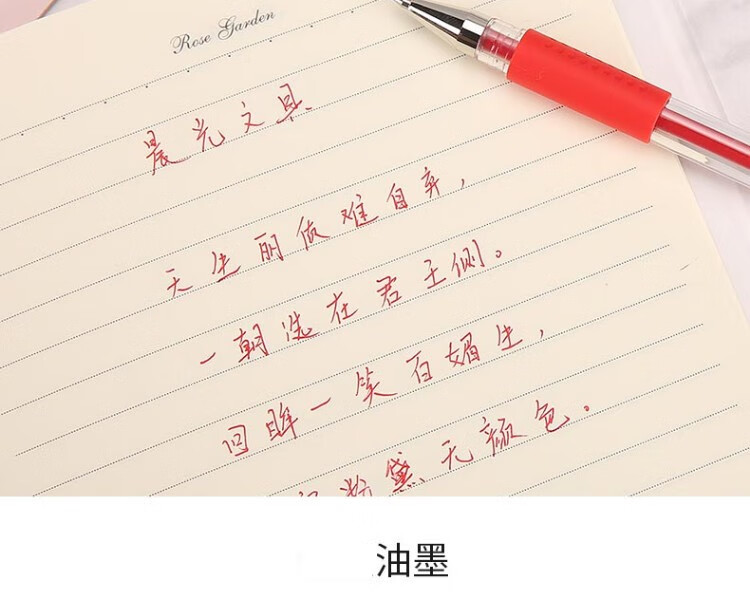 Rose Garden
晨光文具
天生丽做难自弃，
一朝选在君王侧。
回眸一笑百媚生，
粉黛无颜色。
油墨